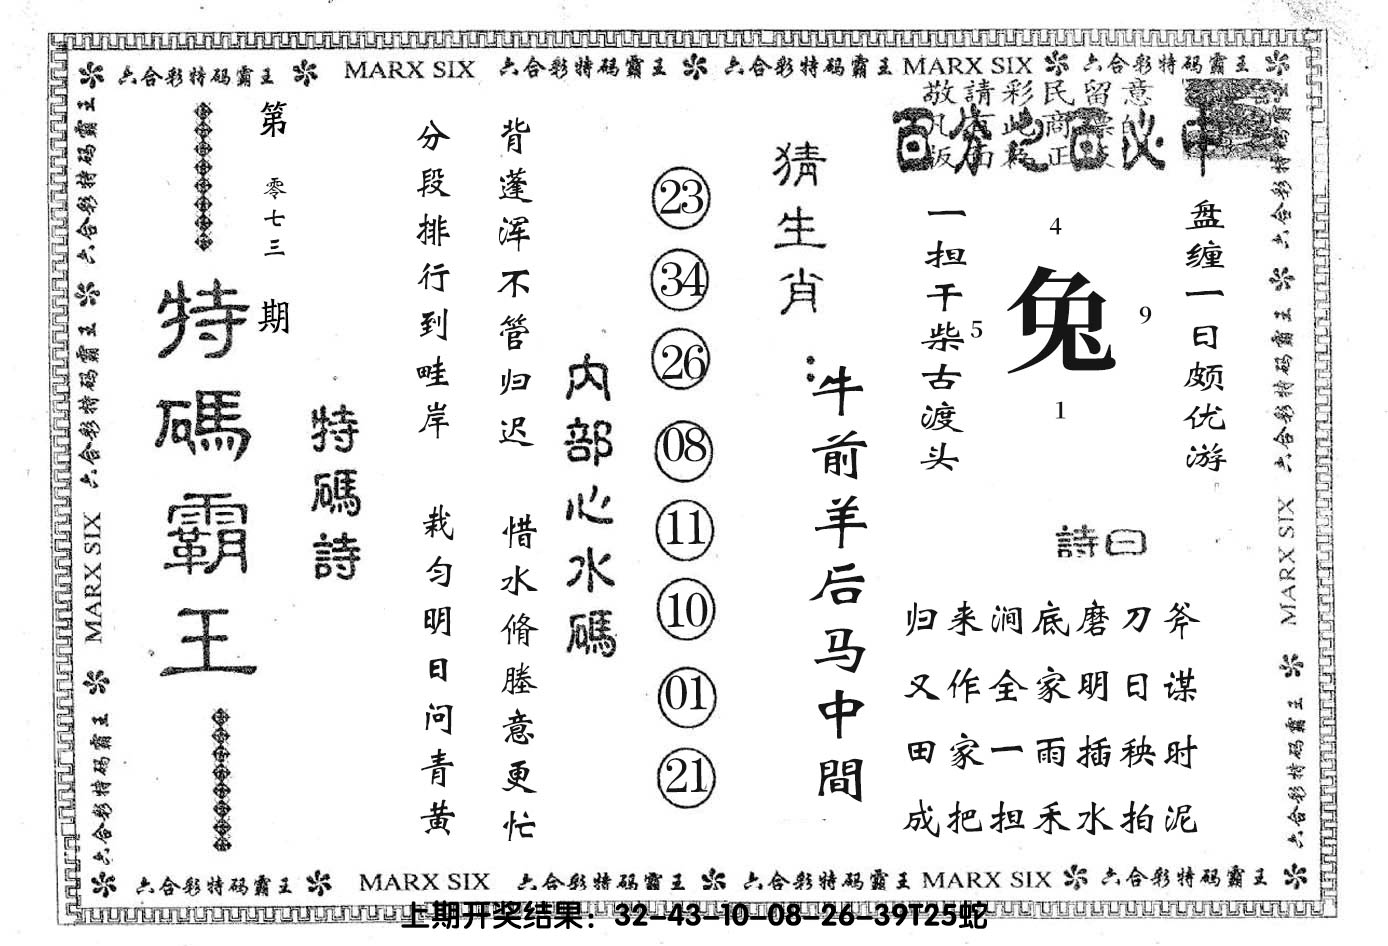 六合彩特码霸王 MARX SIX 六合彩特码霸王 六合彩特码霸王 MARX SIX 六合彩特码霸王
敬請彩民留意
百分之百必中
盘缠一日颇优游
4
兔
9
5
1
一担干柴古渡头
詩曰
归来涧底磨刀斧
又作全家明日谋
田家一雨插秧时
成把担禾水拍泥
猜生肖：
牛前羊后马中間
23
34
26
08
11
10
01
21
内部心水碼
背蓬浑不管归迟
惜水脩塍意更忙
分段排行到畦岸
栽匀明日问青黄
特碼詩
第零七三期
特碼霸王
六合彩特码霸王 六合彩特码霸王 MARX SIX 六合彩特码霸王
六合彩特码霸王 六合彩特码霸王 MARX SIX 六合彩特码霸王
六合彩特码霸王 MARX SIX 六合彩特码霸王 六合彩特码霸王 MARX SIX 六合彩特码霸王
上期开奖结果：32-43-10-08-26-39T25蛇